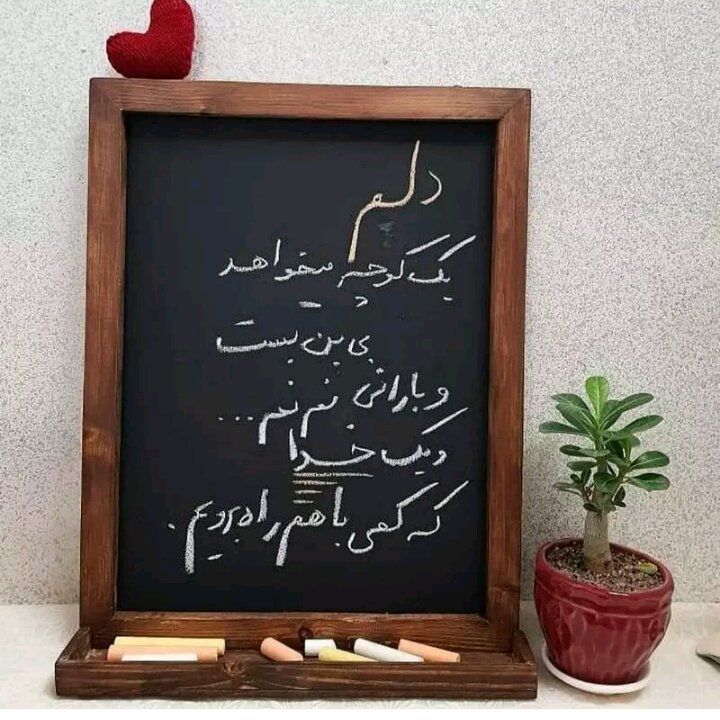 دلم
یک کوچه میخواهد
بی بن بست
و بارانی نم نم ...
و یک خدا
که کمی با هم راه برویم .